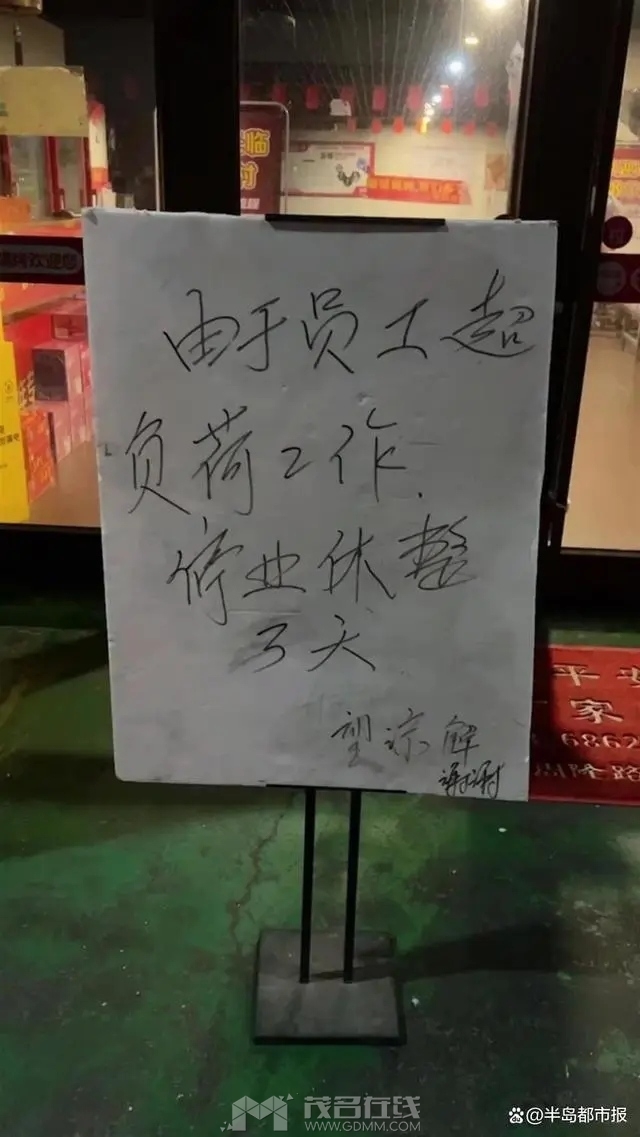 由于员工超
负荷工作.
停业休整
3天
望谅解
谢谢
临
欢迎您
平安
家
6862
隆路
茂名在线
WWW.GDMM.COM
@半岛都市报